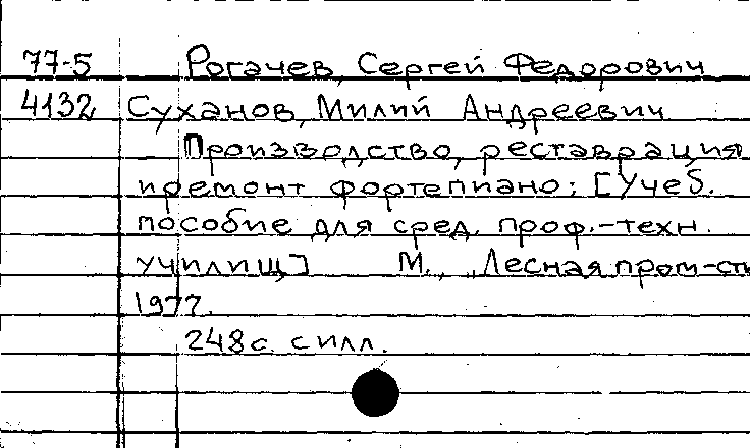 77-5 Рогачев, Сергей Федорович
4132 Суханов, Милий Андреевич
Производство, реставрация
и ремонт фортепиано: [Учеб.
пособие для сред. проф.-техн.
училищ] М., „Лесная пром-сть
1977.
248с. с илл.